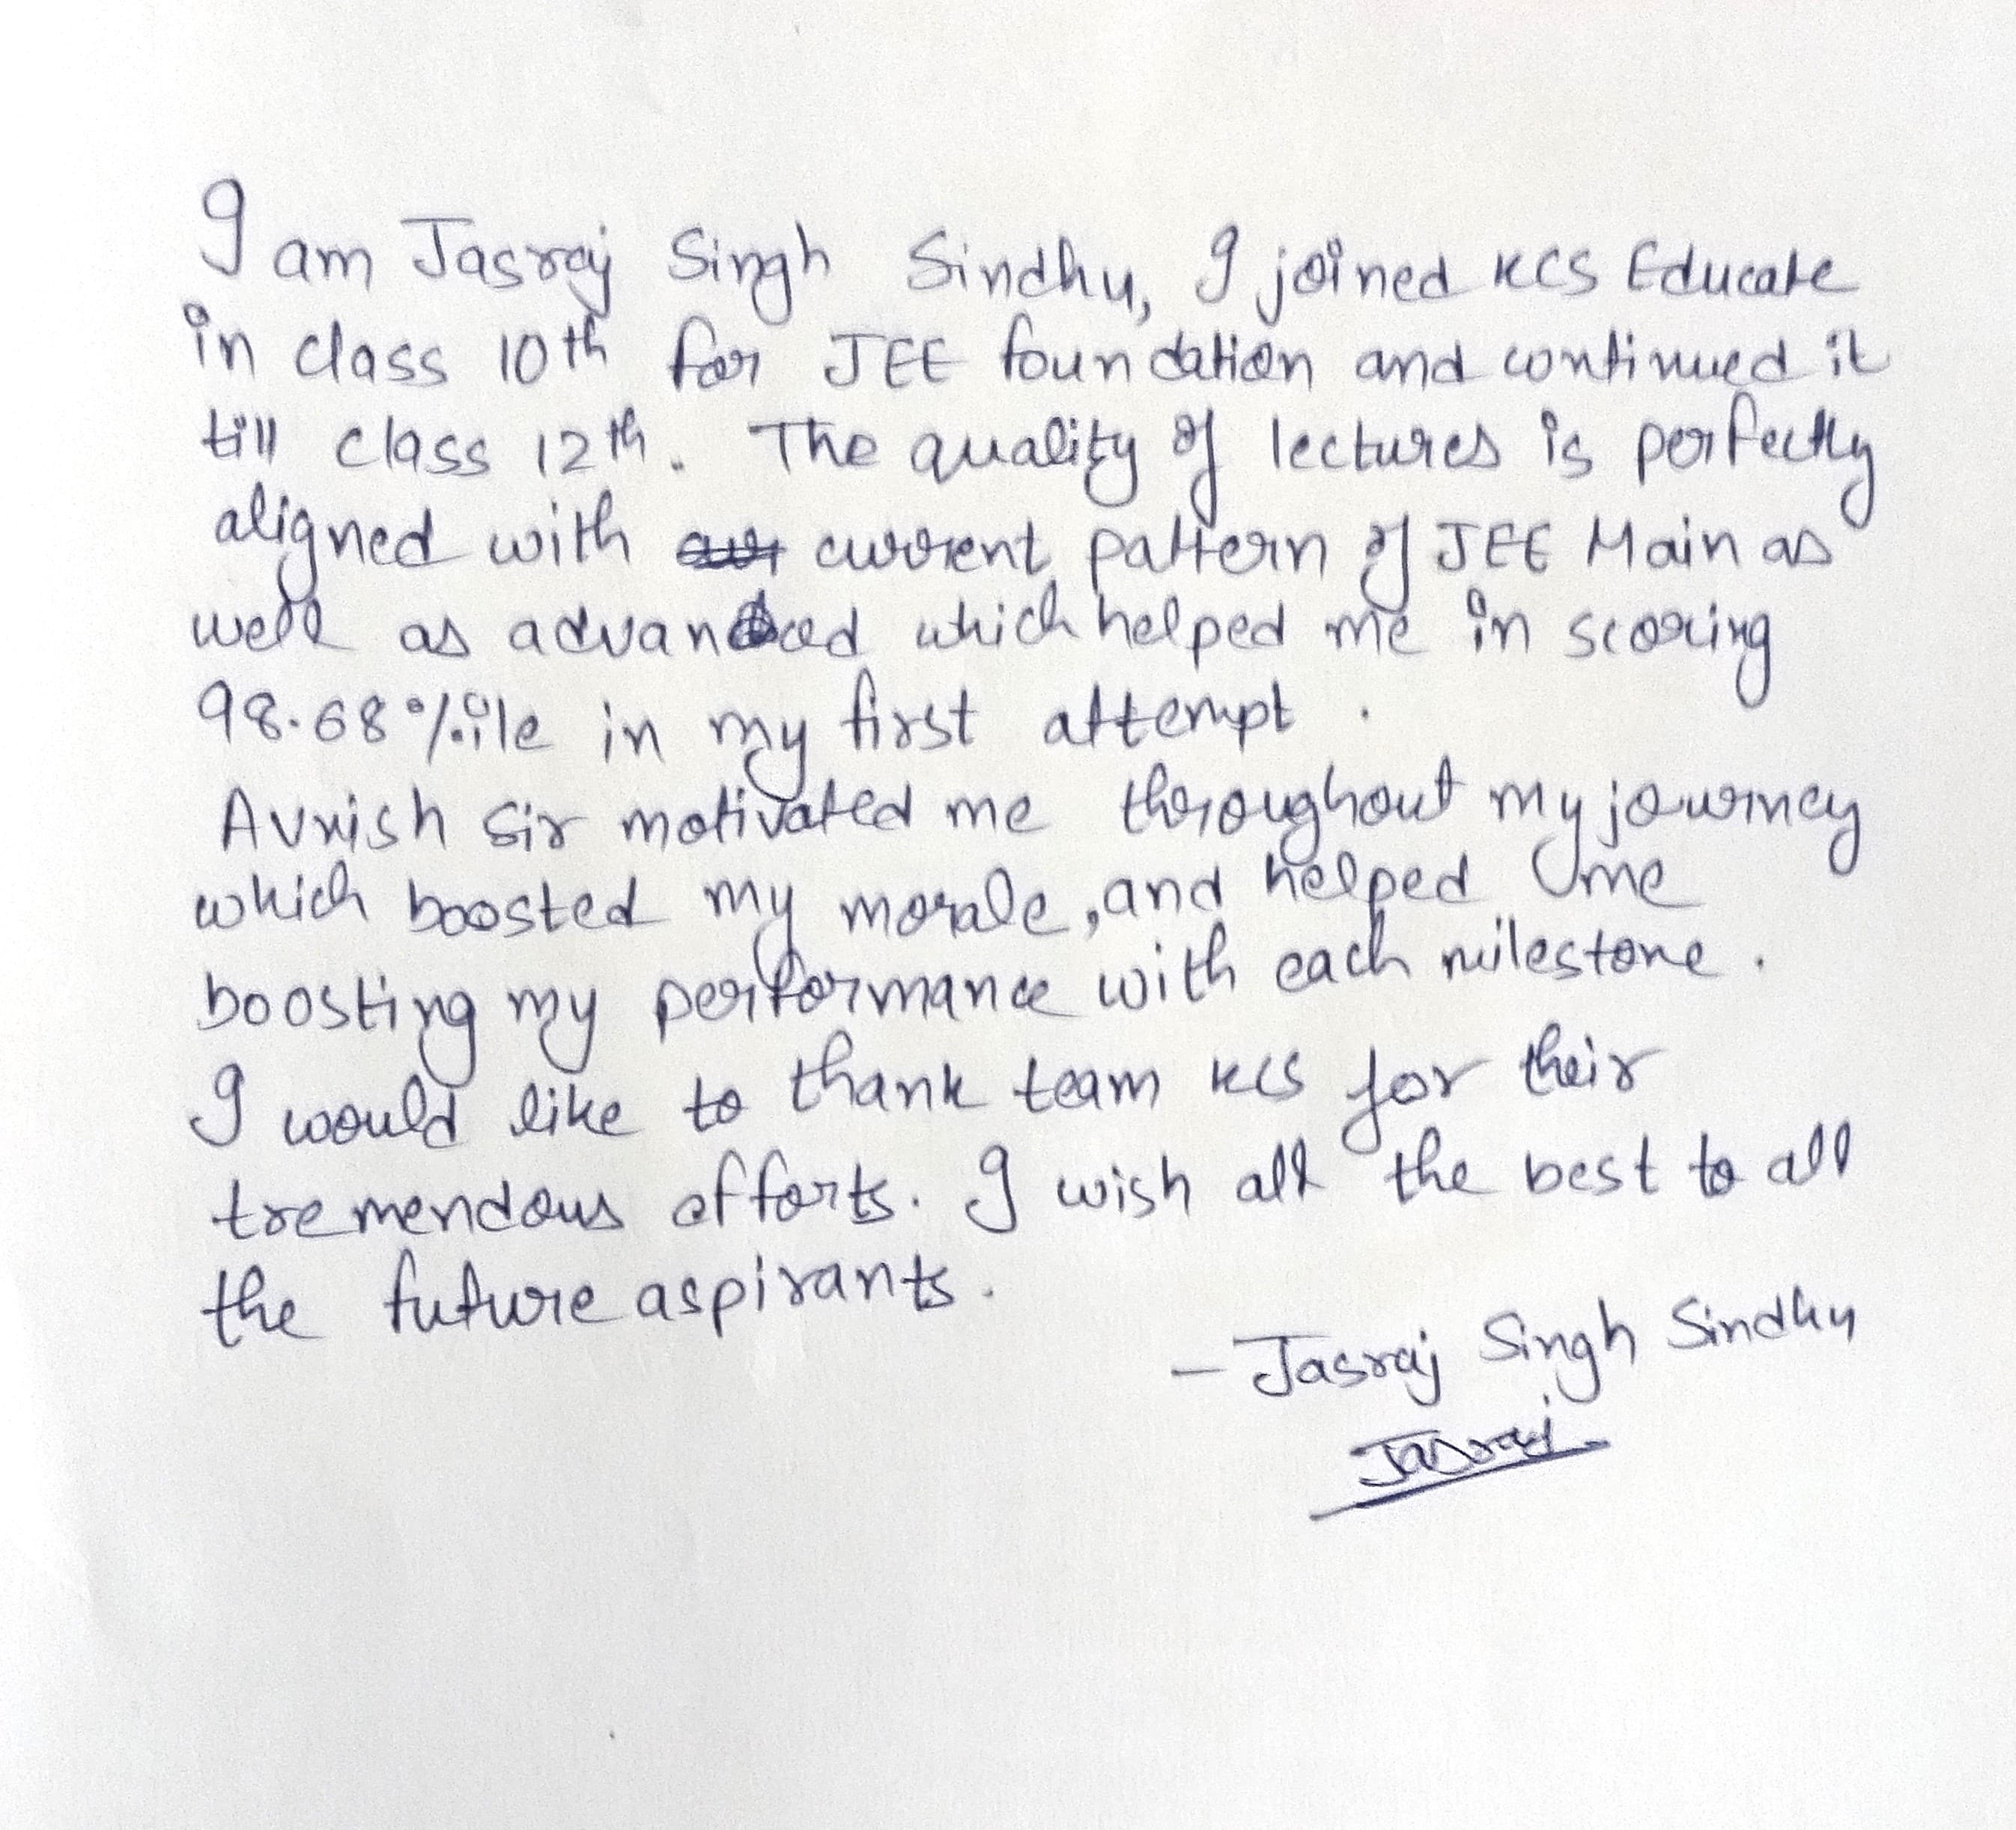 I am Jasraj Singh Sindhu, I joined KCS Educate
in class 10th for JEE foundation and continued it
till class 12th. The quality of lectures is perfectly
aligned with current pattern of JEE Main as
well as advanced which helped me in scoring
98.68%ile in my first attempt.
Avnish Sir motivated me throughout my journey
which boosted my morale, and helped me
boosting my performance with each milestone.
I would like to thank team KCS for their
tremendous efforts. I wish all the best to all
the future aspirants.
- Jasraj Singh Sindhu
Jasraj